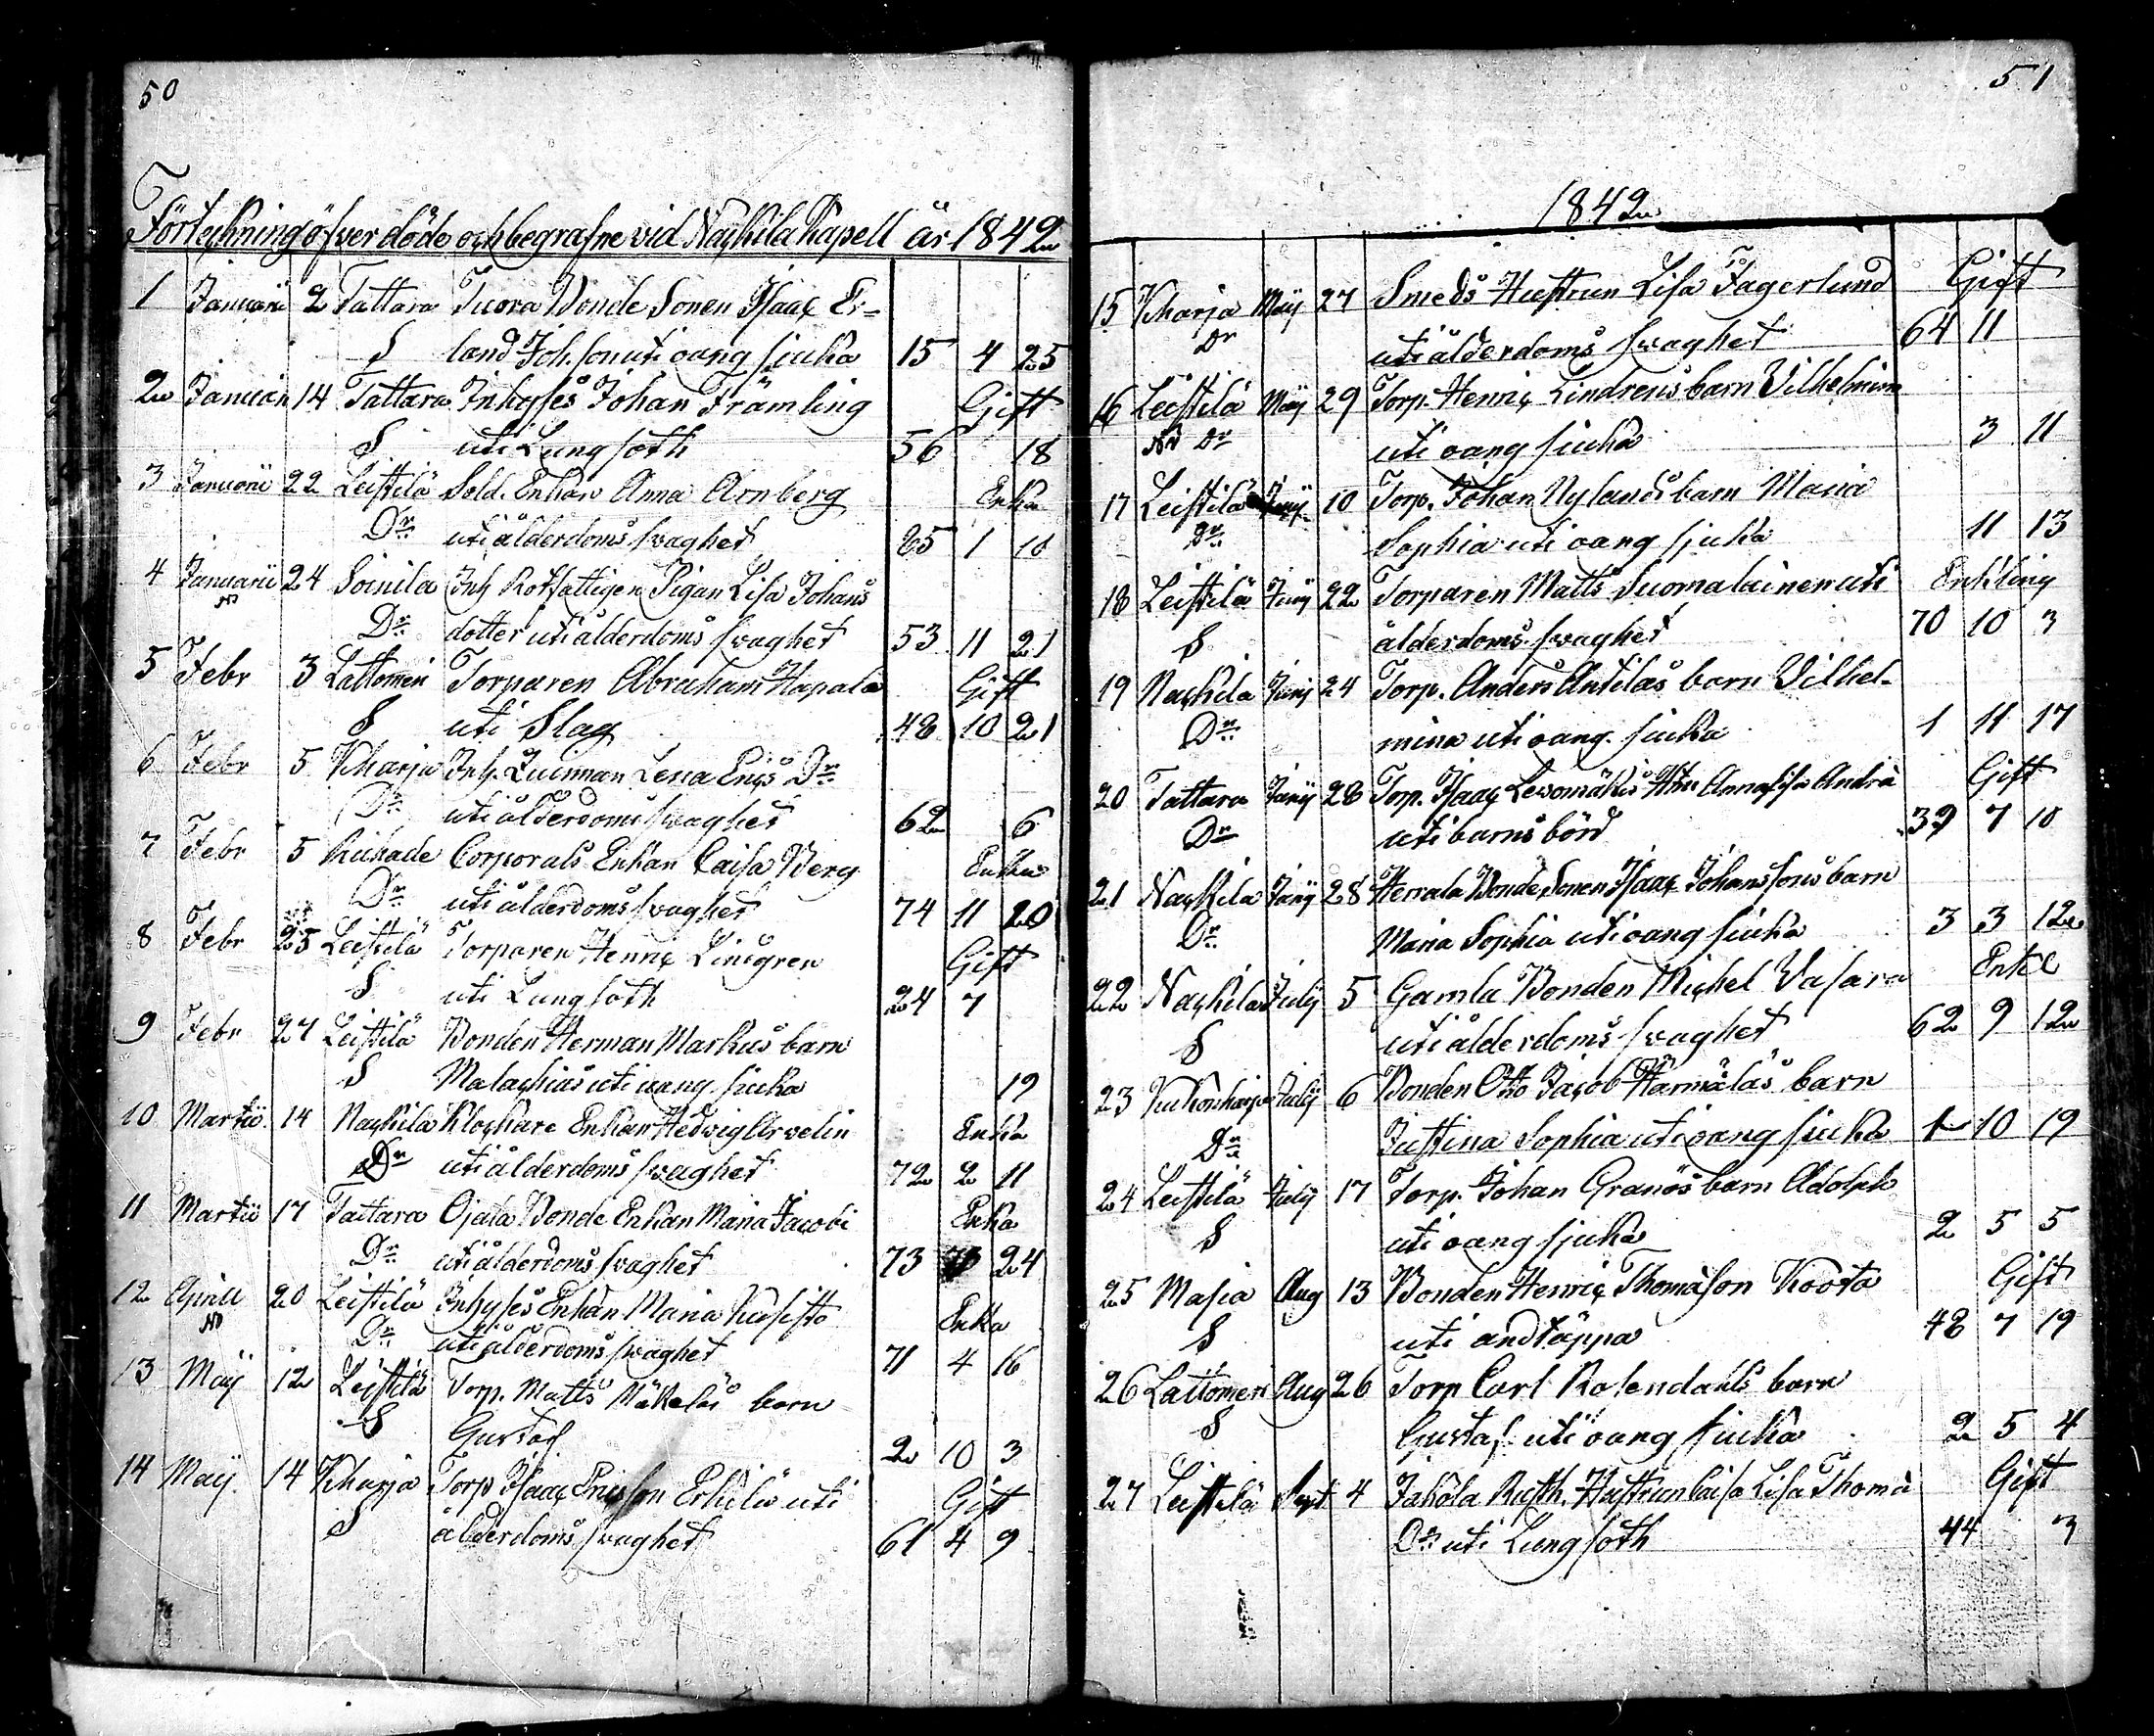 50
Förteckning öfver döde och begrafne vid Nackila Kapell år 1842
1 Januarii 2 Tattara Tuora Bonde Sonen Isaac Er-
S land Joh.son uti oang sjuka 15 4 25
2 Januarii 14 Tattara Inhyses Johan Främling Gift
S uti Lungsoth 56 18
3 Januarii 22 Leistilä Sold. Enkan Anna Arnberg Enka
Dr uti ålderdoms svaghet 65 1 10
4 Januarii 24 Soinila Inh Rotfattigen Pigan Lisa Johans
No Dr dotter uti ålderdoms svaghet 53 11 21
5 Febr 3 Lattomeri Torparen Abraham Hapala Gift
S uti Slag 48 10 21
6 Febr 5 Kharja Inh. Lena Erics Dr
Dr uti ålderdoms svaghet 62 6
7 Febr 5 Corporals Enkan Caisa Berg Enka
Dr uti ålderdoms svaghet 74 11 20
8 Febr 25 Leistilä Torparen Henric Lindgren Gift
S uti Lungsoth 24 7
9 Febr 27 Leistilä Bonden Herman Markus barn
S Malachias uti oang sjuka 19
10 Martii 14 Nackila Klockare Enkan Hedvig Arvelin Enka
Dr uti ålderdoms svaghet 72 2 11
11 Martii 17 Tattara Ojala Bonde Enkan Maria Jacobi Enka
Dr uti ålderdoms svaghet 73 24
12 Aprill 20 Leistilä Inhyses Enkan Maria Kusisto Enka
No Dr uti ålderdoms svaghet 71 4 16
13 Maij 12 Leistilä Torp. Matts Mäkeläs barn
S Gustaf 2 10 3
14 Maij 14 Kharja Torp Isaac Ericsson Erkilä uti Gift
S ålderdoms svaghet 61 4 9
51
1842
15 Kharja Maij 27 Smeds Hustrun Lisa Fagerlund Gift
Dr uti ålderdoms svaghet 64 11
16 Leistilä Maij 29 Torp. Henric Lindrens barn Vilhelmina
No Dr uti oang sjuka 3 11
17 Leistilä Junij 10 Torp. Johan Nylands barn Maria
Dr Sophia uti oang sjuka 11 13
18 Leistilä Junij 22 Torparen Matts Suomalainen uti Enkling
S ålderdoms svaghet 70 10 3
19 Nackila Junij 24 Torp. Anders Antilas barn Vilhel-
Dr mina uti oang. sjuka 1 11 17
20 Tattara Junij 28 Torp. Isaac Levomäkis Hu Annalisa Andrä Gift
Dr uti barnsbörd 39 7 10
21 Nackila Junij 28 Herrala Bonde Sonen Isaac Johanssons barn
Dr Maria Sophia uti oang sjuka 3 3 12
22 Nackila Julij 5 Gamla Bonden Michel Vasara Enkl
S uti ålderdoms svaghet 62 9 12
23 Kukonharja Julij 6 Bonden Otto Jacob Härmäläs barn
Dr Justina Sophia uti oang sjuka 1 10 19
24 Leistilä Julij 17 Torp. Johan Granös barn Adolph
S uti oang sjuka 2 5 5
25 Masia Aug 13 Bonden Henric Thomasson Koosta Gift
S uti andtäppa 48 7 19
26 Lattomeri Aug 26 Torp Carl Rosendahls barn
S Gustaf uti oang sjuka 2 5 4
27 Leistilä Sept 4 Jakola Rusth. Hustrun Caisa Lisa Thomä Gift
Dr uti Lungsoth 44 3